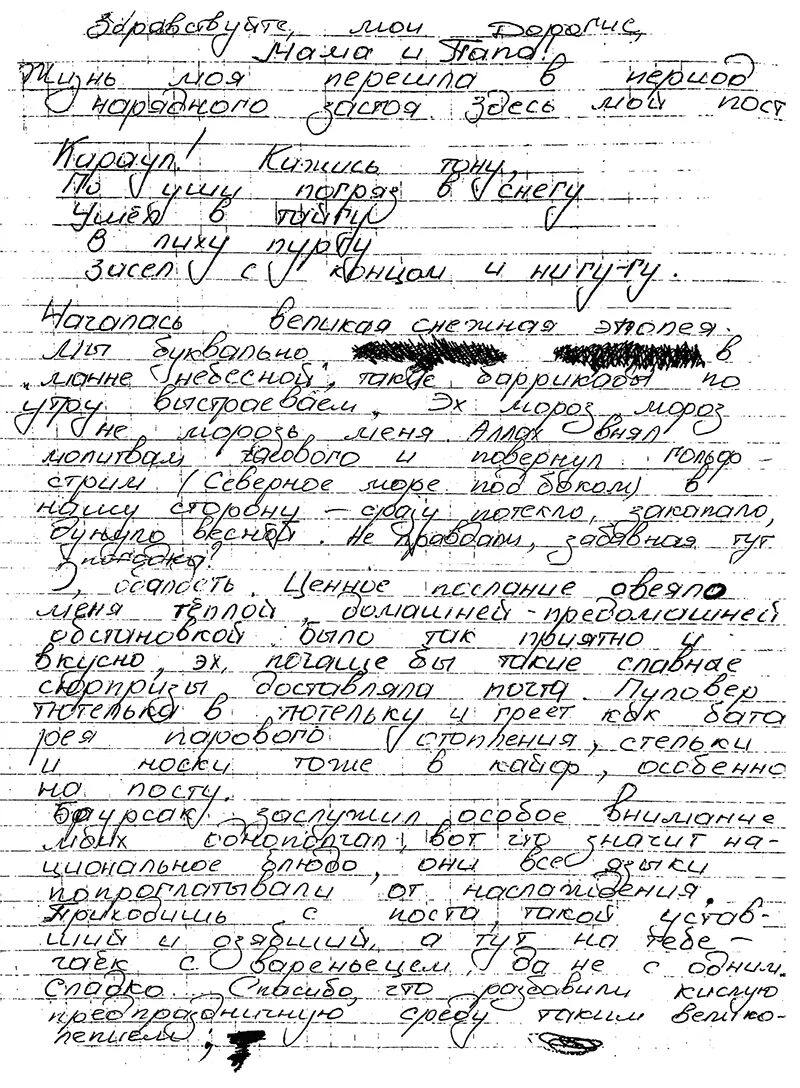 Здравствуйте, мои Дорогие,
Мама и Папа!
Жизнь моя перешла в период
нарядного застоя. Здесь мой пост
Караул! Кажись тону,
По уши погряз в снегу
Ушёл в тайгу
В лиху пургу
Засел с концом и ни гу-гу.
Началась великая снежная эпопея.
Мы буквально в
манне небесной, такие баррикады по
утру выстраеваем. Эх мороз мороз
не морозь меня. Аллах внял
молитвам часового и повернул гольф-
стрим (Северное море под боком) в
нашу сторону – сразу потекло, закапало,
дунуло весной. Не правдали, забавная тут
погодка?
О, сладость. Ценное послание овеяло
меня тёплой, домашней-предомашней
обстановкой. было так приятно и
вкусно, эх, почаще бы такие славные
сюрпризы доставляла почта. Пуловер
тютелька в тютельку и греет как бата
рея парового отопления, стельки
и носки тоже в кайф, особенно
на посту.
Баурсак заслужил особое внимание
моих однополчан, вот что значит на-
циональное блюдо, они все языки
попроглатывали от наслаждения.
Приходишь с поста, такой устав-
ший и озябший, а тут на тебе –
чаёк с вареньецем, да не с одним.
Сладко. Спасибо, что разбавили кислую
предпраздничную среду таким велико-
лепием;